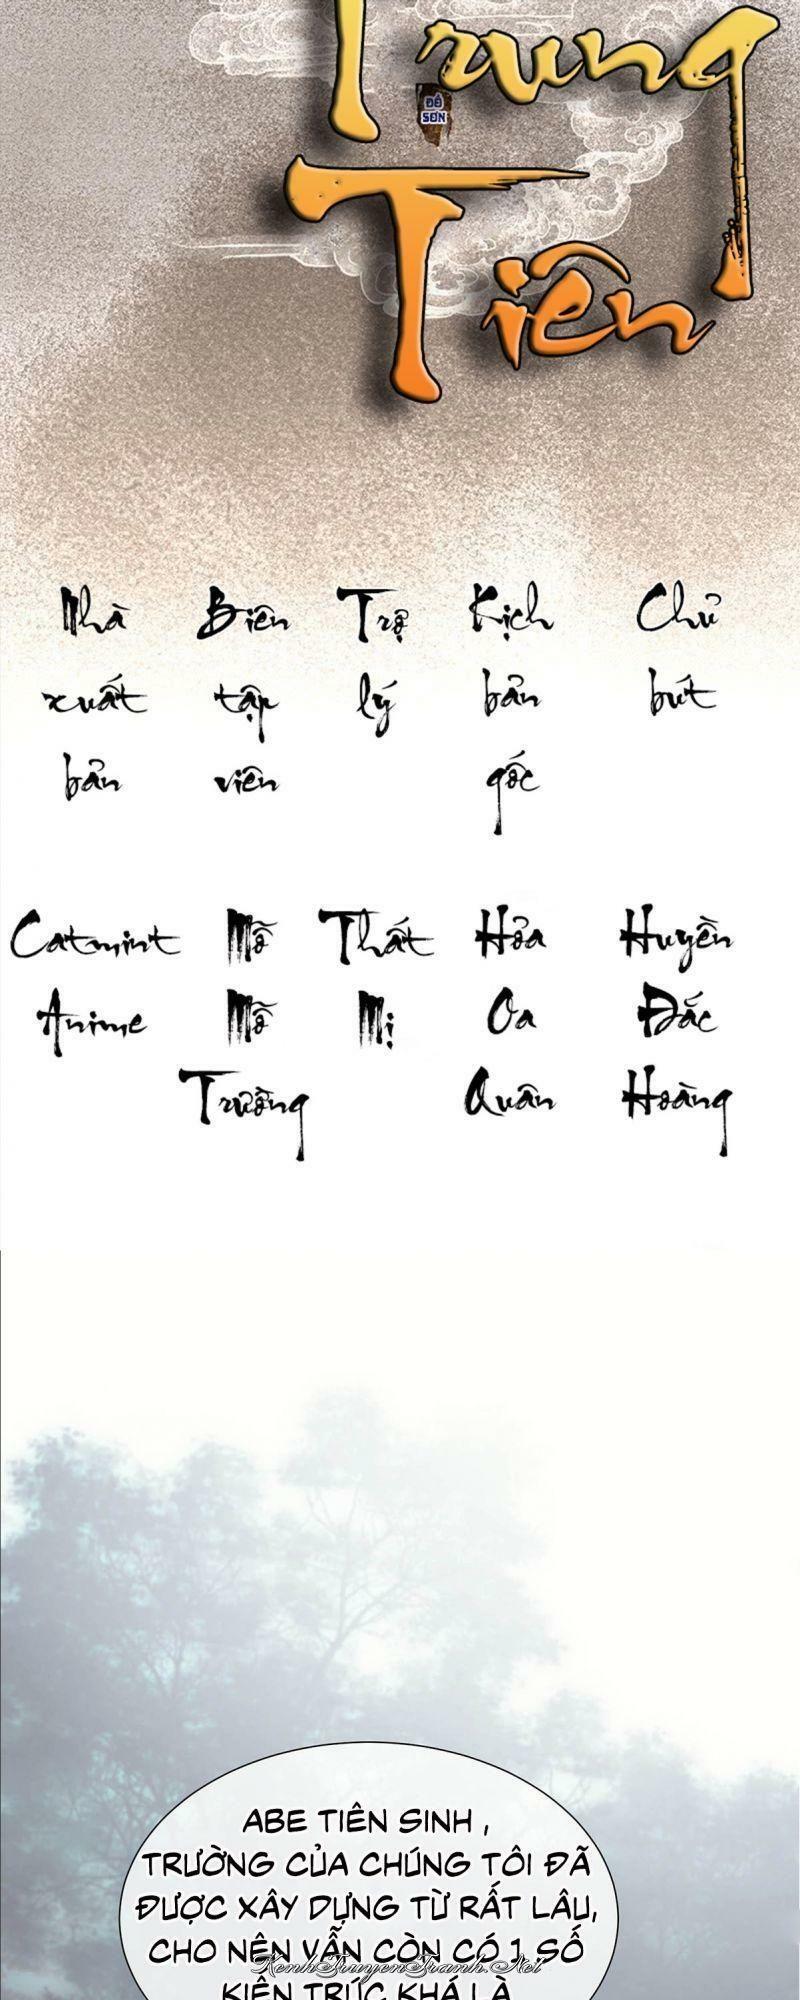 Trung
ĐỒ
SƠN
Tiên
Nhà Biên Trợ Kịch Chủ
xuất tập lý bản bút
bản viên gốc
Catmint Mỗ Thất Hỏa Huyền
Anime Mỗ Mị Oa Đắc
Trường Quân Hoàng
ABE TIÊN SINH,
TRƯỜNG CỦA CHÚNG TÔI ĐÃ
ĐƯỢC XÂY DỰNG TỪ RẤT LÂU,
CHO NÊN VẪN CÒN CÓ 1 SỐ
KenhTruyenTranh.Net
KIẾN TRÚC KHÁ LÀ